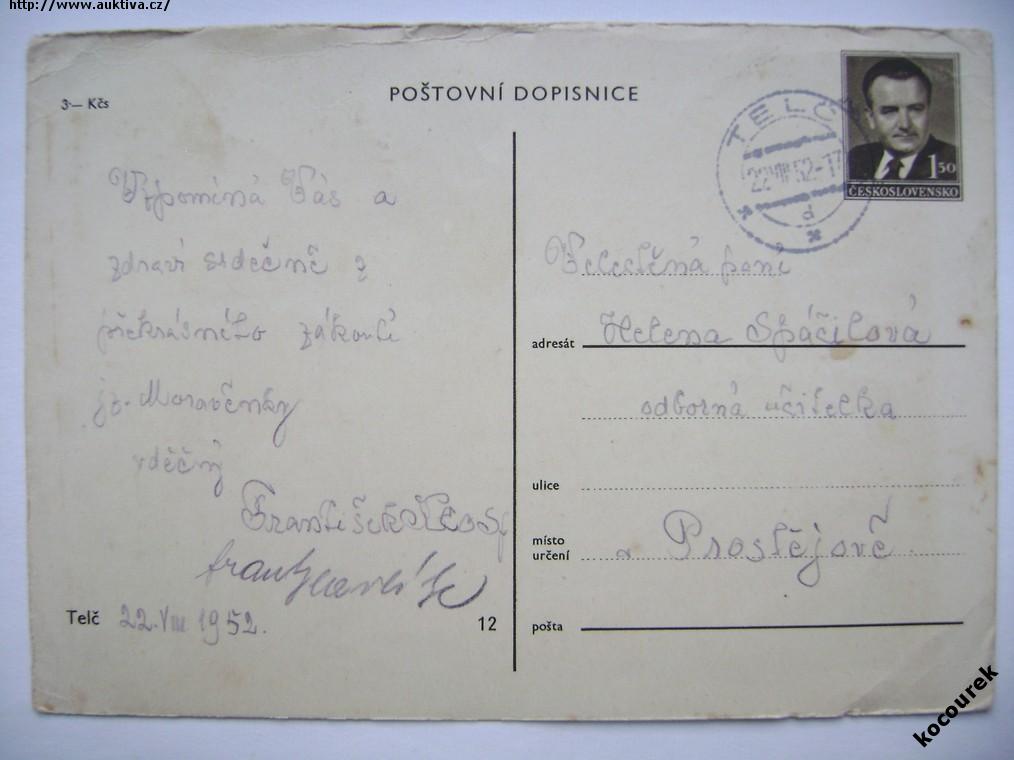 http://www.auktiva.cz/
3·— Kčs
POŠTOVNÍ DOPISNICE
TELČ
22.VIII.52-17
d
1 50
ČESKOSLOVENSKO
Vzpomíná Vás a
zdraví srdečně z
překrásného zákoutí
jz. Moravěnky
vděčný
František
Telč 22.VIII 1952.
12
Velectěná paní
adresát Helena Spáčilová
odborná učitelka
ulice
místo
určení v Prostějově
pošta
kocourek